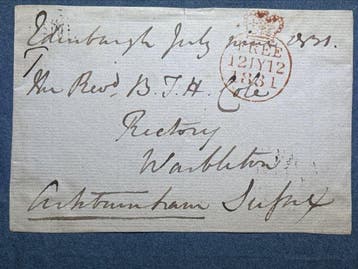 Edinburgh July 1831.
The Revd. B. T. H. Cole
Rectory
Warbleton
Ashburnham Sussex
FREE
12JY12
1831